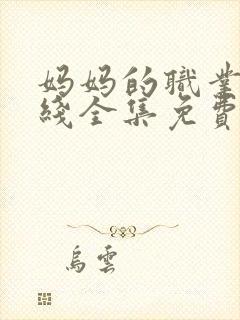 妈妈的職業
綫全集免費
烏雲